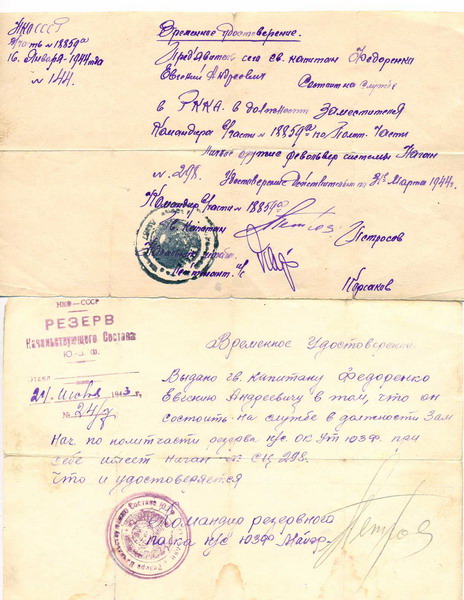 НКО СССР
В/часть № 18859а
16. Января - 1944 года
№ 144.
Временное удостоверение.
Пред'явитель сего гв. капитан Федоренко
Евгений Андреевич Состоит на службе
в РККА в должности Заместителя
Командира в/части № 18859а по Полит. Части
Личное оружие револьвер системы Наган
№ 298. Удостоверение действительно по 31 Марта 1944 г.
Командир в/части № 18859а
гв. Капитан Петросов
Лейтенант а/с Корсаков
НКО-СССР
РЕЗЕРВ
Начальствующего Состава
Ю-З. Ф.
1943 г.
№ 24/7
Временное Удостоверение
Выдано гв. Капитану Федоренко
Евгению Андреевичу в том, что он
состоить на службе в должности Зам
Нач. по политчасти резерва н/с. ЮЗФ. при
себе имеет наган СЦ 298.
Что и удостоверяется
Командир резервного
полка н/с ЮЗФ Майор